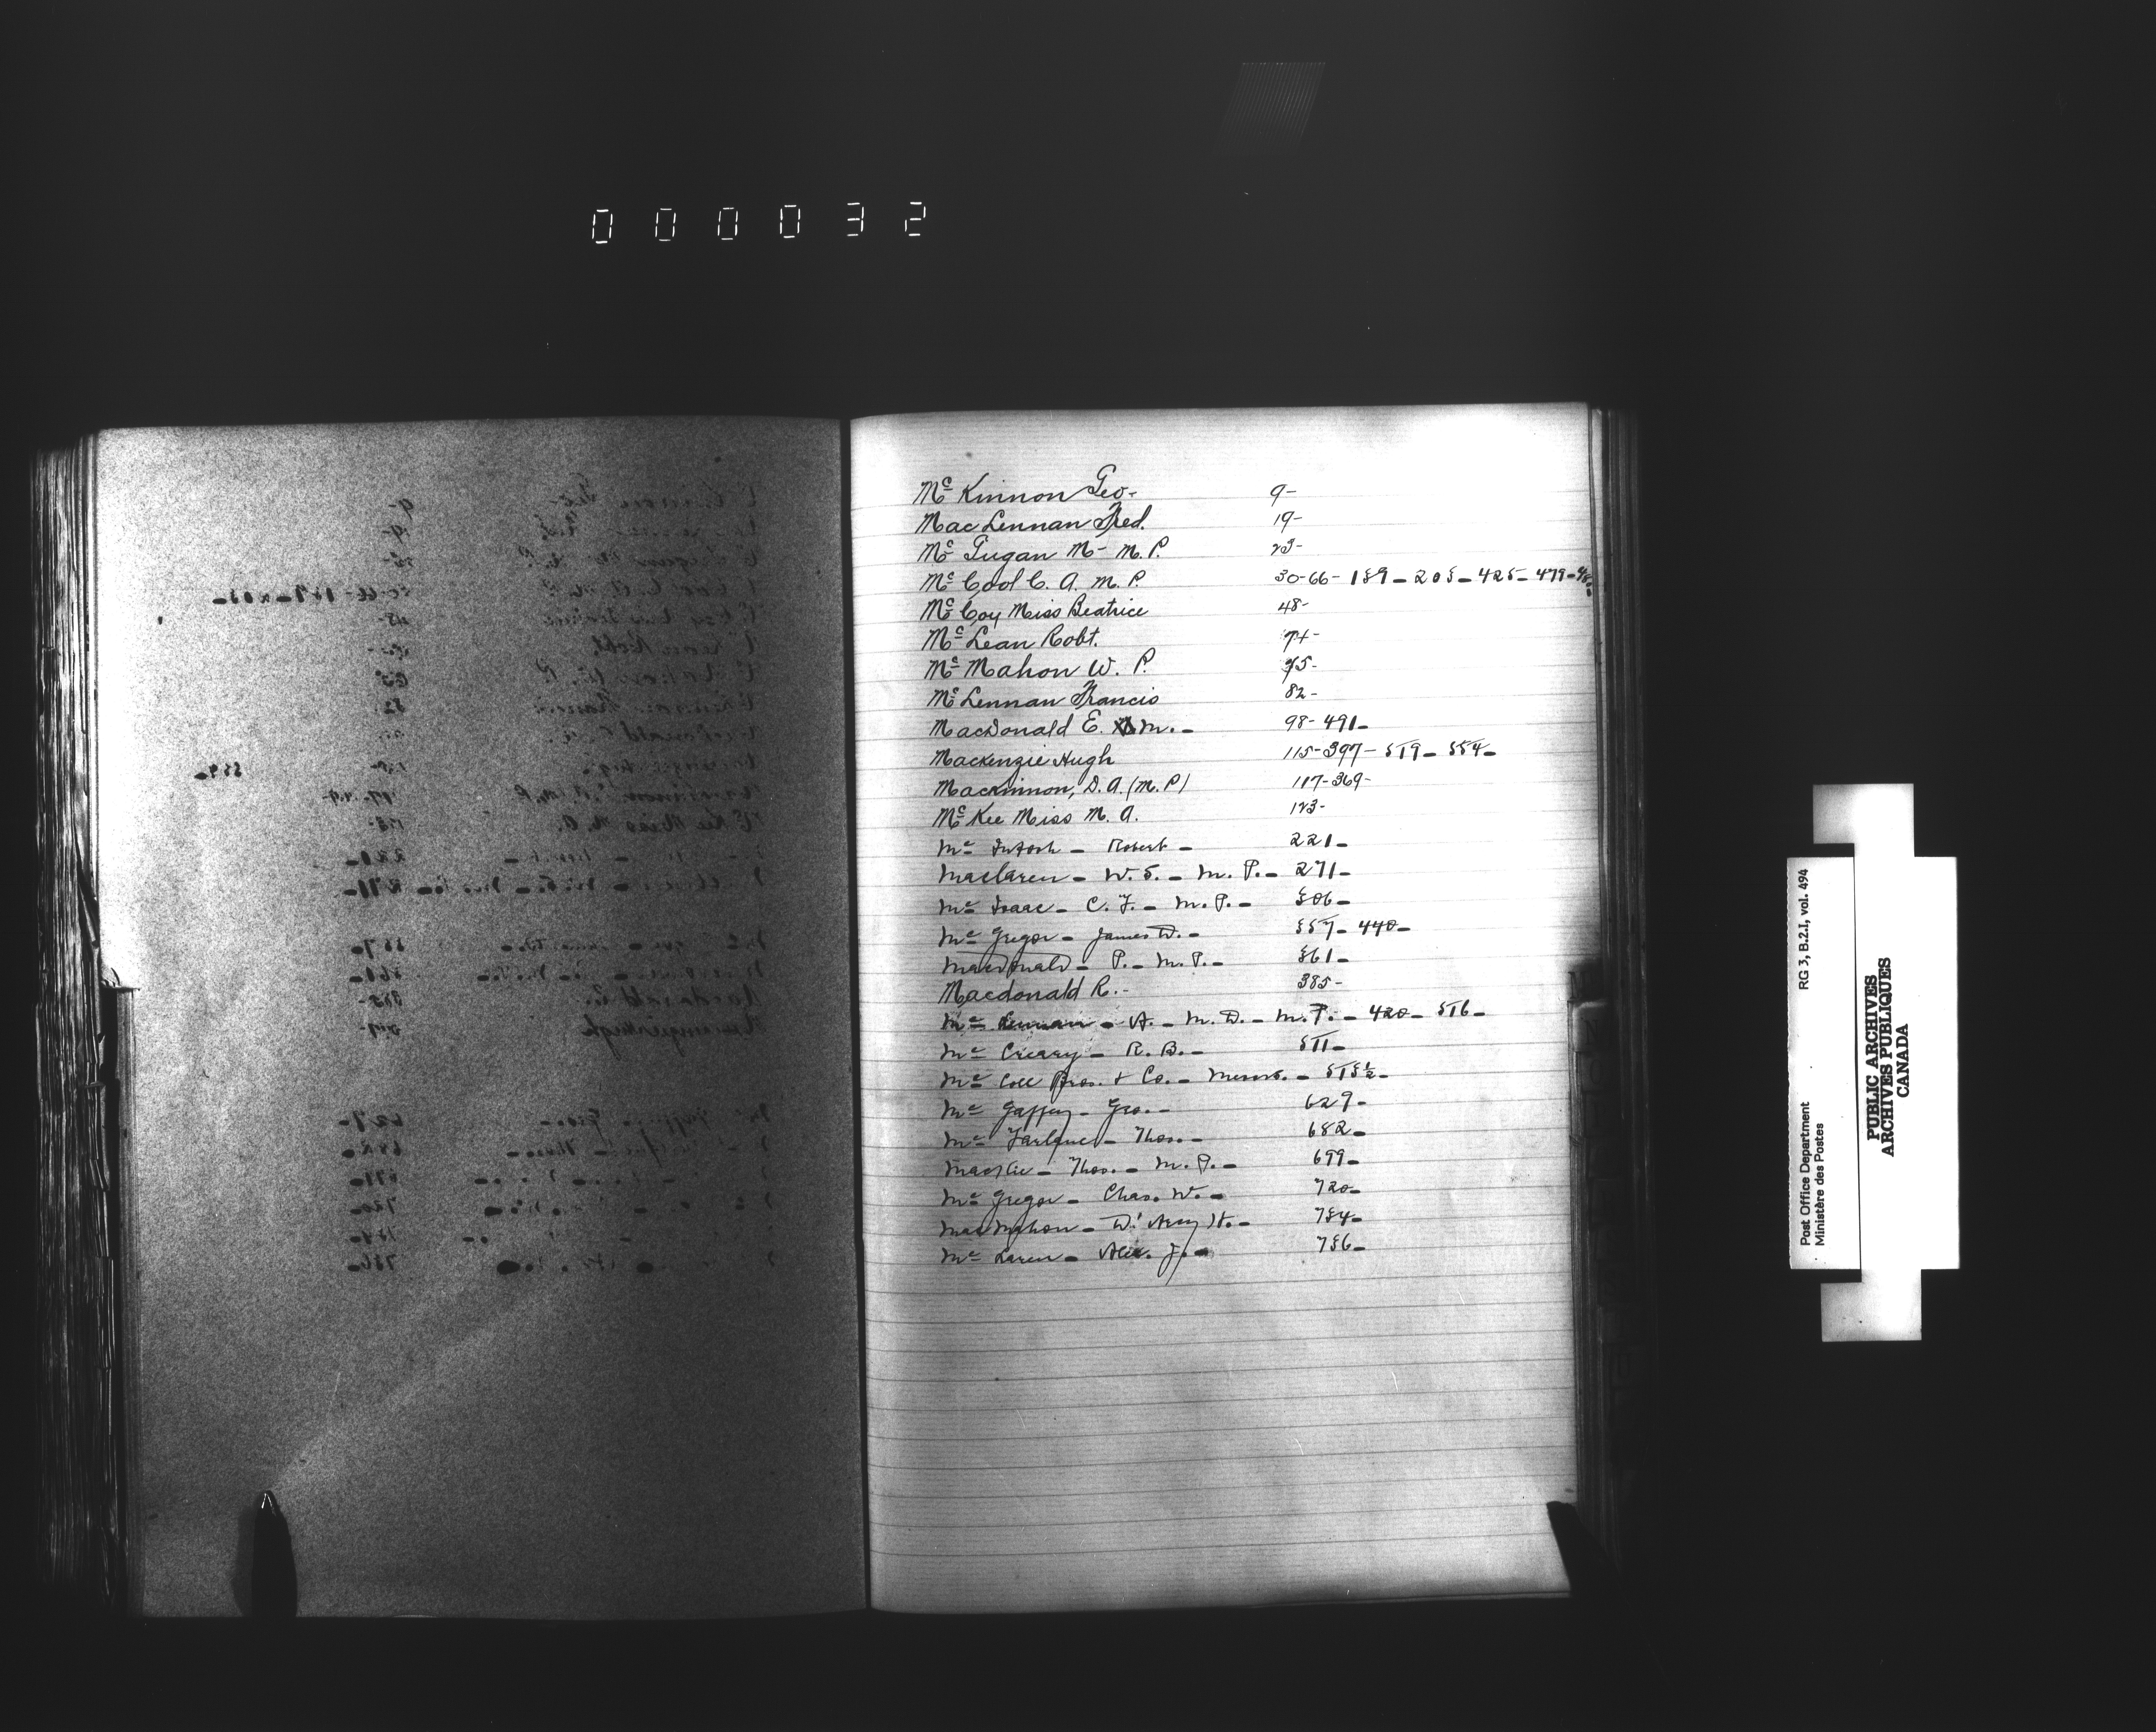 000032
Mc Kinnon Geo- 9-
Mac Lennan Fred. 19-
Mc Gugan M- M.P. 23-
Mc Cool C. A. M. P. 30-66-189-205-425-479-480
Mc Coy Miss Beatrice 48-
Mc Lean Robt. 74-
Mc Mahon W. P. 75-
Mc Lennan Francis 82-
MacDonald E. M.- 98-491-
Mackenzie Hugh 115-397-519-554-
Mackinnon, D.A. (M.P) 117-369-
Mc Kee Miss M. A. 123-
Mc Intosh - Robert - 221-
Maclaren - W. S. - M. P. - 271-
Mc Isaac - C. F. - M.P. - 306-
Mc Gregor - James D. - 357-440-
Macdonald - P. - M. P. - 361-
Macdonald R.- 385-
Mc Lennan - A. - M. D. - M. P. - 420-516-
Mc Creary - R. B. - 511-
Mc Coll Bros. & Co. - Messrs. - 515½-
Mc Gaffey - Geo. - 629-
Mc Farlane - Thos. - 682-
Mackie - Thos. - M. P. - 699-
Mc Gregor - Chas. W. - 720-
MacMahon - D'Arcy H. - 734-
Mc Laren - Alex. J. - 736-
RG 3, B.2.I, vol. 494
Post Office Department
Ministère des Postes
PUBLIC ARCHIVES
ARCHIVES PUBLIQUES
CANADA